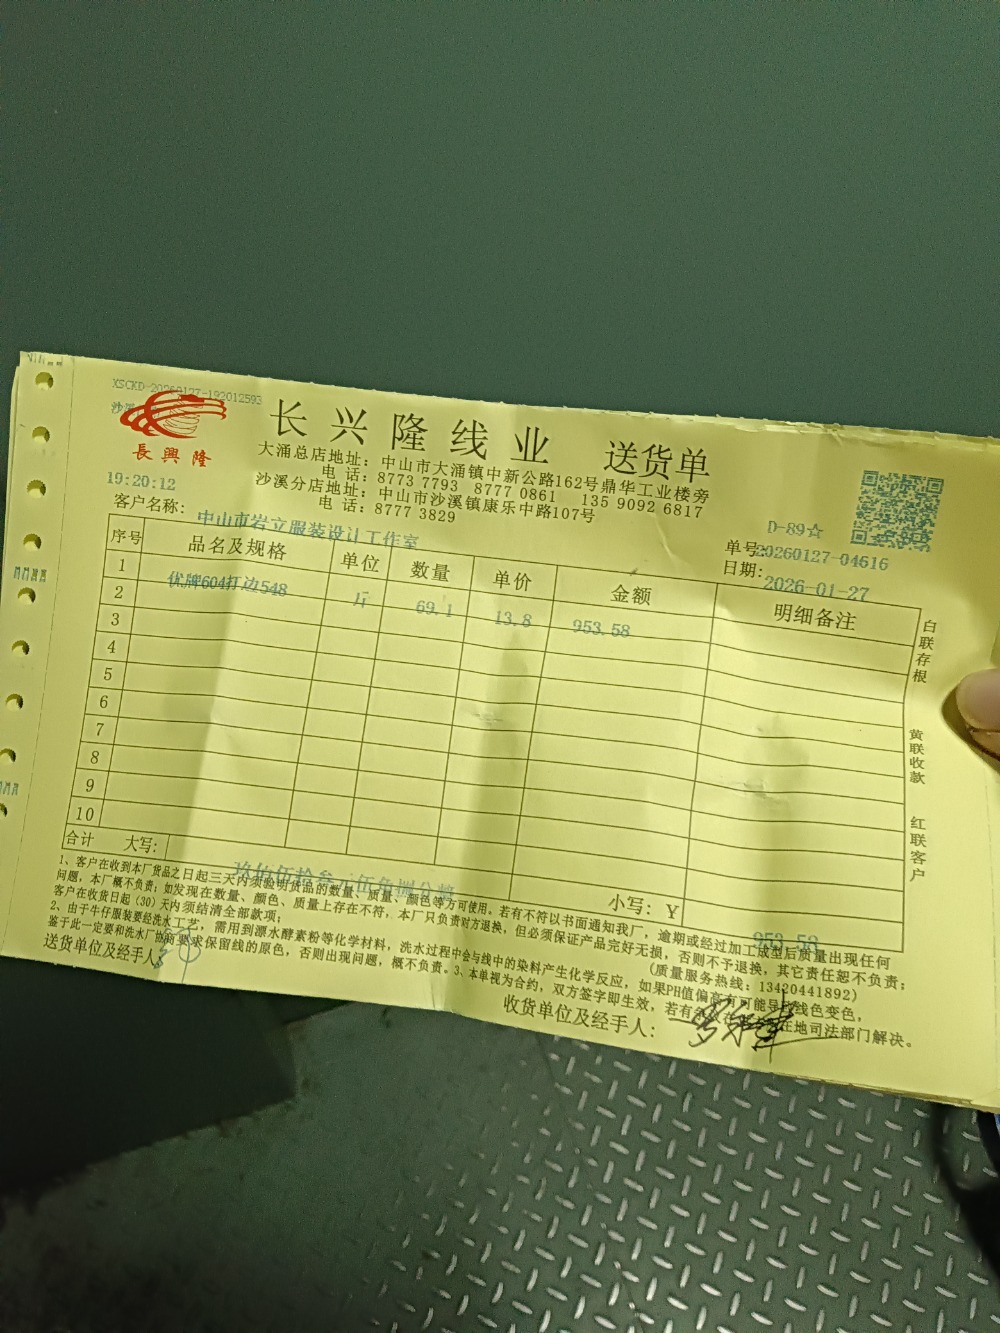 XSCKD-20260127-192012593
長興隆
长兴隆线业 送货单
大涌总店地址：中山市大涌镇中新公路162号鼎华工业楼旁
电话：8773 7793 8777 0861 135 9092 6817
沙溪分店地址：中山市沙溪镇康乐中路107号
电话：8777 3829
19:20:12
D-89☆
客户名称：中山市岩立服装设计工作室
单号：20260127-04616
日期：2026-01-27
序号 品名及规格 单位 数量 单价 金额 明细备注
1 优牌604扛边548 斤 69.1 13.8 953.58
2
3
4
5
6
7
8
9
10
合计 大写：玖佰伍拾叁元伍角捌分整 小写：¥ 953.58
白联存根 黄联收款 红联客户
1、客户在收到本厂货品之日起三天内须验明货品的数量、质量、颜色等方可使用。若有不符以书面通知我厂，逾期或经过加工成型后质量出现任何
问题，本厂概不负责；如发现在数量、颜色、质量上存在不符，本厂只负责对方退换，但必须保证产品完好无损，否则不予退换，其它责任恕不负责；
客户在收货日起（30）天内须结清全部款项； （质量服务热线：13420441892）
2、由于牛仔服装要经洗水工艺，需用到漂水酵素粉等化学材料，洗水过程中会与线中的染料产生化学反应，如果PH值偏高有可能导致线色变色，
鉴于此一定要和洗水厂协商要求保留线的原色，否则出现问题，概不负责。3、本单视为合约，双方签字即生效，若有 在地司法部门解决。
送货单位及经手人：
收货单位及经手人：